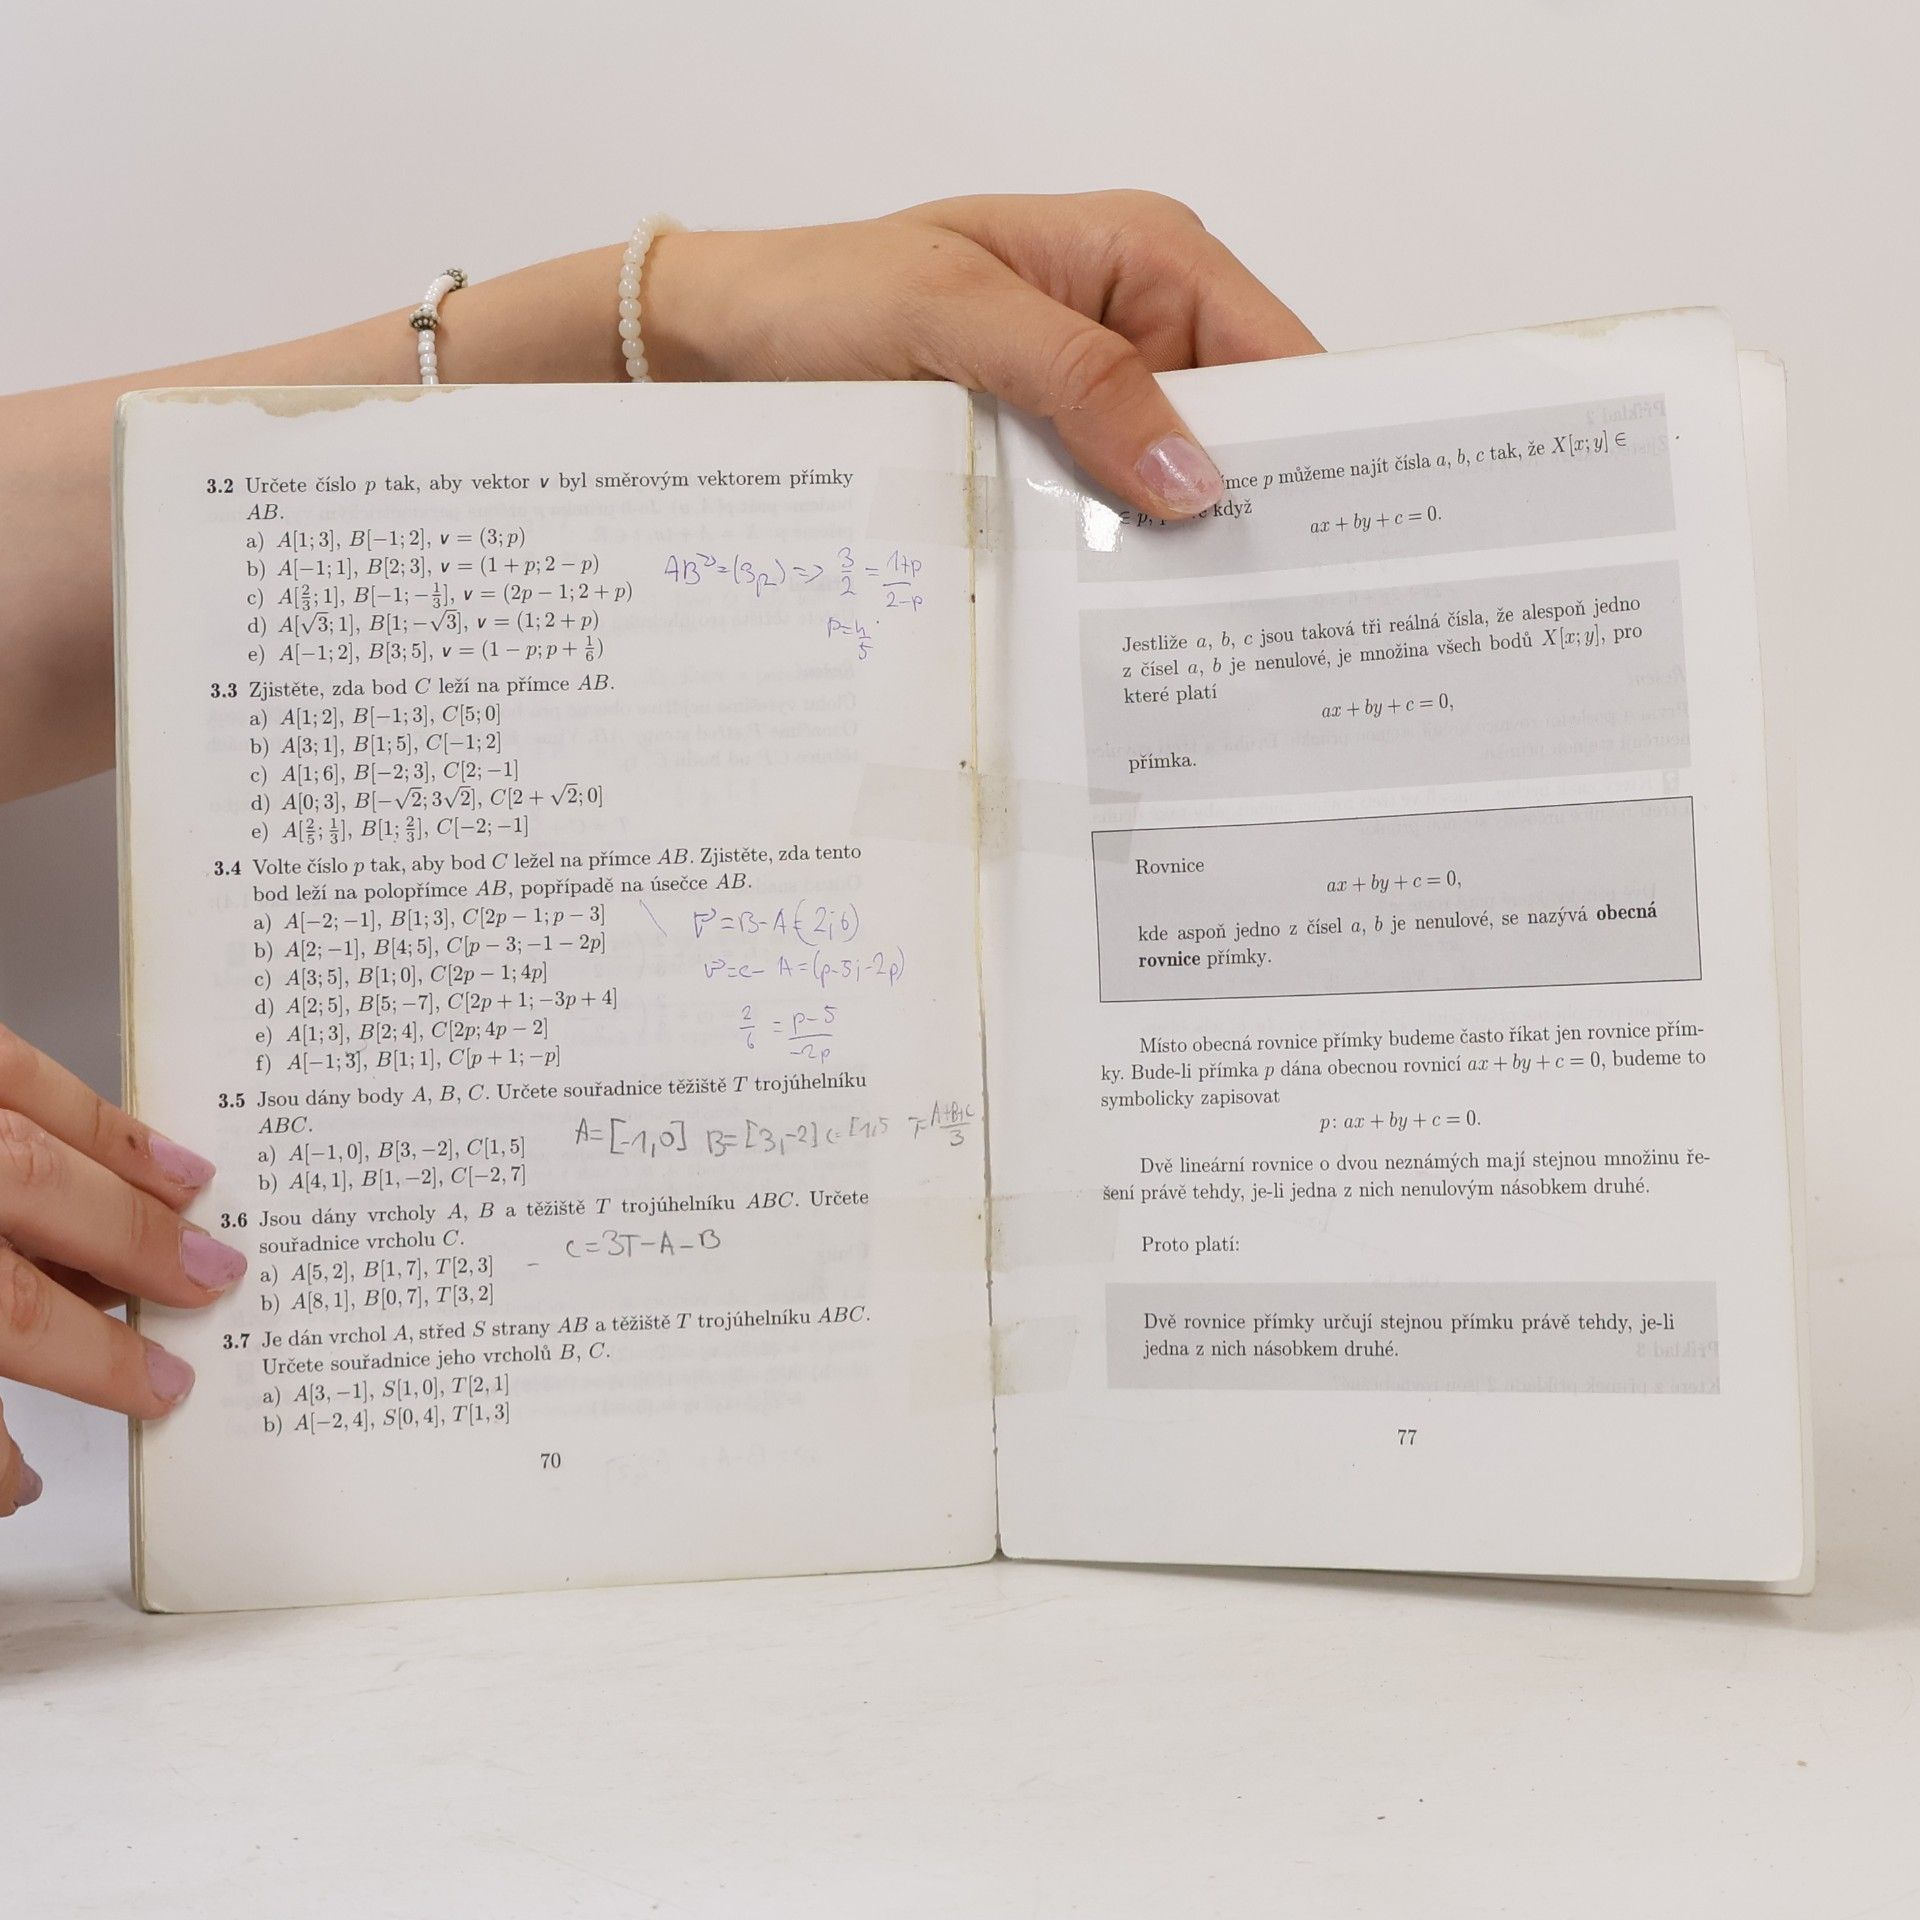 3.2 Určete číslo p tak, aby vektor v byl směrovým vektorem přímky
AB.
a) A[1; 3], B[−1; 2], v = (3; p)
b) A[−1; 1], B[2; 3], v = (1 + p; 2 − p)
c) A[2/3; 1], B[−1; −1/3], v = (2p − 1; 2 + p)
d) A[√3; 1], B[1; −√3], v = (1; 2 + p)
e) A[−1; 2], B[3; 5], v = (1 − p; p + 1/6)
=> 3/2 = 1+p/2−p
3.3 Zjistěte, zda bod C leží na přímce AB.
a) A[1; 2], B[−1; 3], C[5; 0]
b) A[3; 1], B[1; 5], C[−1; 2]
c) A[1; 6], B[−2; 3], C[2; −1]
d) A[0; 3], B[−√2; 3√2], C[2 + √2; 0]
e) A[2/5; 1/3], B[1; 2/3], C[−2; −1]
3.4 Volte číslo p tak, aby bod C ležel na přímce AB. Zjistěte, zda tento
bod leží na polopřímce AB, popřípadě na úsečce AB.
a) A[−2; −1], B[1; 3], C[2p − 1; p − 3]
b) A[2; −1], B[4; 5], C[p − 3; −1 − 2p]
c) A[3; 5], B[1; 0], C[2p − 1; 4p]
d) A[2; 5], B[5; −7], C[2p + 1; −3p + 4]
e) A[1; 3], B[2; 4], C[2p; 4p − 2]
f) A[−1; 3], B[1; 1], C[p + 1; −p]
= B−A
= C−A=(p−5;−2p)
2/6 = p−5/−2p
3.5 Jsou dány body A, B, C. Určete souřadnice těžiště T trojúhelníku
ABC.
a) A[−1, 0], B[3, −2], C[1, 5]
b) A[4, 1], B[1, −2], C[−2, 7]
A=[−1,0] B=[3,−2] C=[1,5 T=A+B+C/3
3.6 Jsou dány vrcholy A, B a těžiště T trojúhelníku ABC. Určete
souřadnice vrcholu C.
C=3T−A−B
a) A[5, 2], B[1, 7], T[2, 3]
b) A[8, 1], B[0, 7], T[3, 2]
3.7 Je dán vrchol A, střed S strany AB a těžiště T trojúhelníku ABC.
Určete souřadnice jeho vrcholů B, C.
a) A[3, −1], S[1, 0], T[2, 1]
b) A[−2, 4], S[0, 4], T[1, 3]
70
p můžeme najít čísla a, b, c tak, že X[x; y] ∈
∈ p, když
ax + by + c = 0.
Jestliže a, b, c jsou taková tři reálná čísla, že alespoň jedno
z čísel a, b je nenulové, je množina všech bodů X[x; y], pro
které platí
ax + by + c = 0,
přímka.
Rovnice
ax + by + c = 0,
kde aspoň jedno z čísel a, b je nenulové, se nazývá obecná
rovnice přímky.
Místo obecná rovnice přímky budeme často říkat jen rovnice přím-
ky. Bude-li přímka p dána obecnou rovnicí ax + by + c = 0, budeme to
symbolicky zapisovat
p: ax + by + c = 0.
Dvě lineární rovnice o dvou neznámých mají stejnou množinu ře-
šení právě tehdy, je-li jedna z nich nenulovým násobkem druhé.
Proto platí:
Dvě rovnice přímky určují stejnou přímku právě tehdy, je-li
jedna z nich násobkem druhé.
77